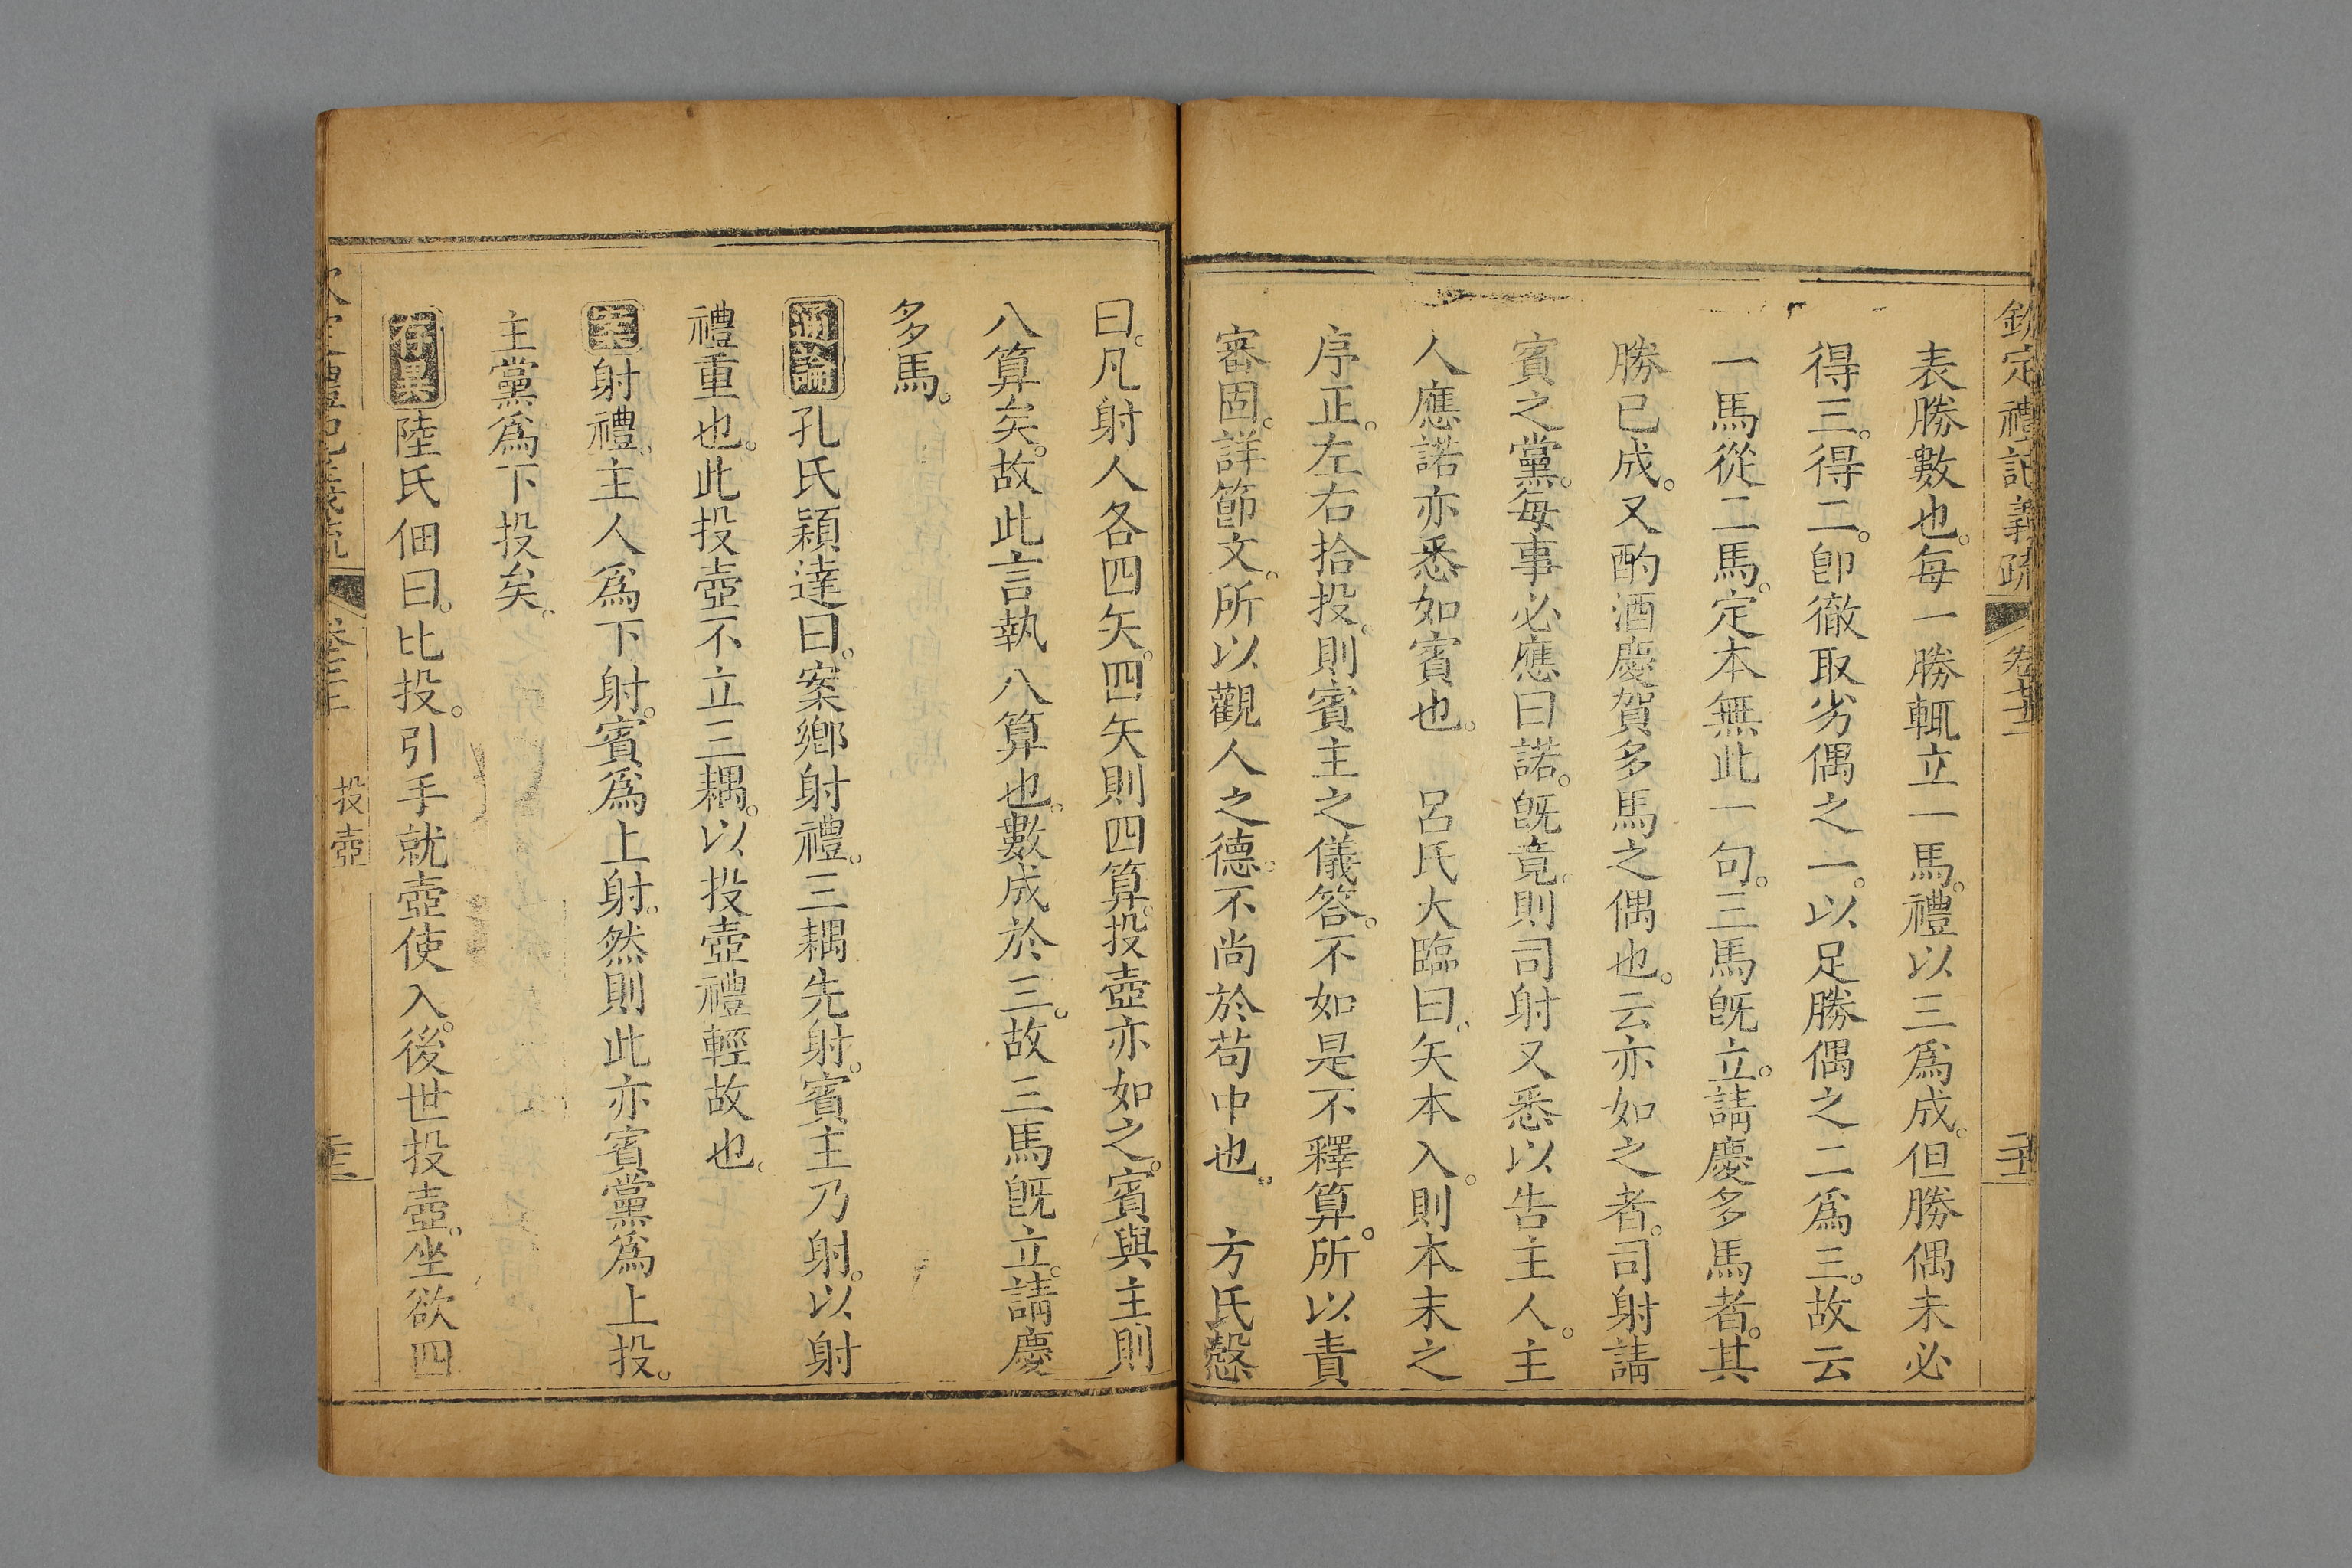 欽定禮記義疏
表勝數也。每一勝輒立一馬。禮以三爲成。但勝偶未必
得三。得二。卽徹取劣偶之一。以足勝偶之二爲三。故云
一馬從二馬。定本無此一句。三馬旣立。請慶多馬者。其
勝已成。又酌酒慶賀多馬之偶也。云亦如之者。司射請
賓之黨。每事必應曰諾。旣竟。則司射又悉以告主人。主
人應諾亦悉如賓也。　呂氏大臨曰。矢本入。則本末之
序正。左右拾投。則賓主之儀答。不如是不釋算。所以責
審固。詳節文。所以觀人之德。不尚於苟中也。　方氏慤
曰。凡射人各四矢。四矢則四算。投壺亦如之。賓與主則
八算矣。故此言執八算也。數成於三。故三馬旣立。請慶
多馬。
通論孔氏穎達曰。案鄉射禮。三耦先射。賓主乃射。以射
禮重也。此投壺不立三耦。以投壺禮輕故也。
射禮。主人爲下射。賓爲上射。然則此亦賓黨爲上投。
主黨爲下投矣。
存異陸氏佃曰。比投。引手就壺使入。後世投壺。坐欲四
投壺